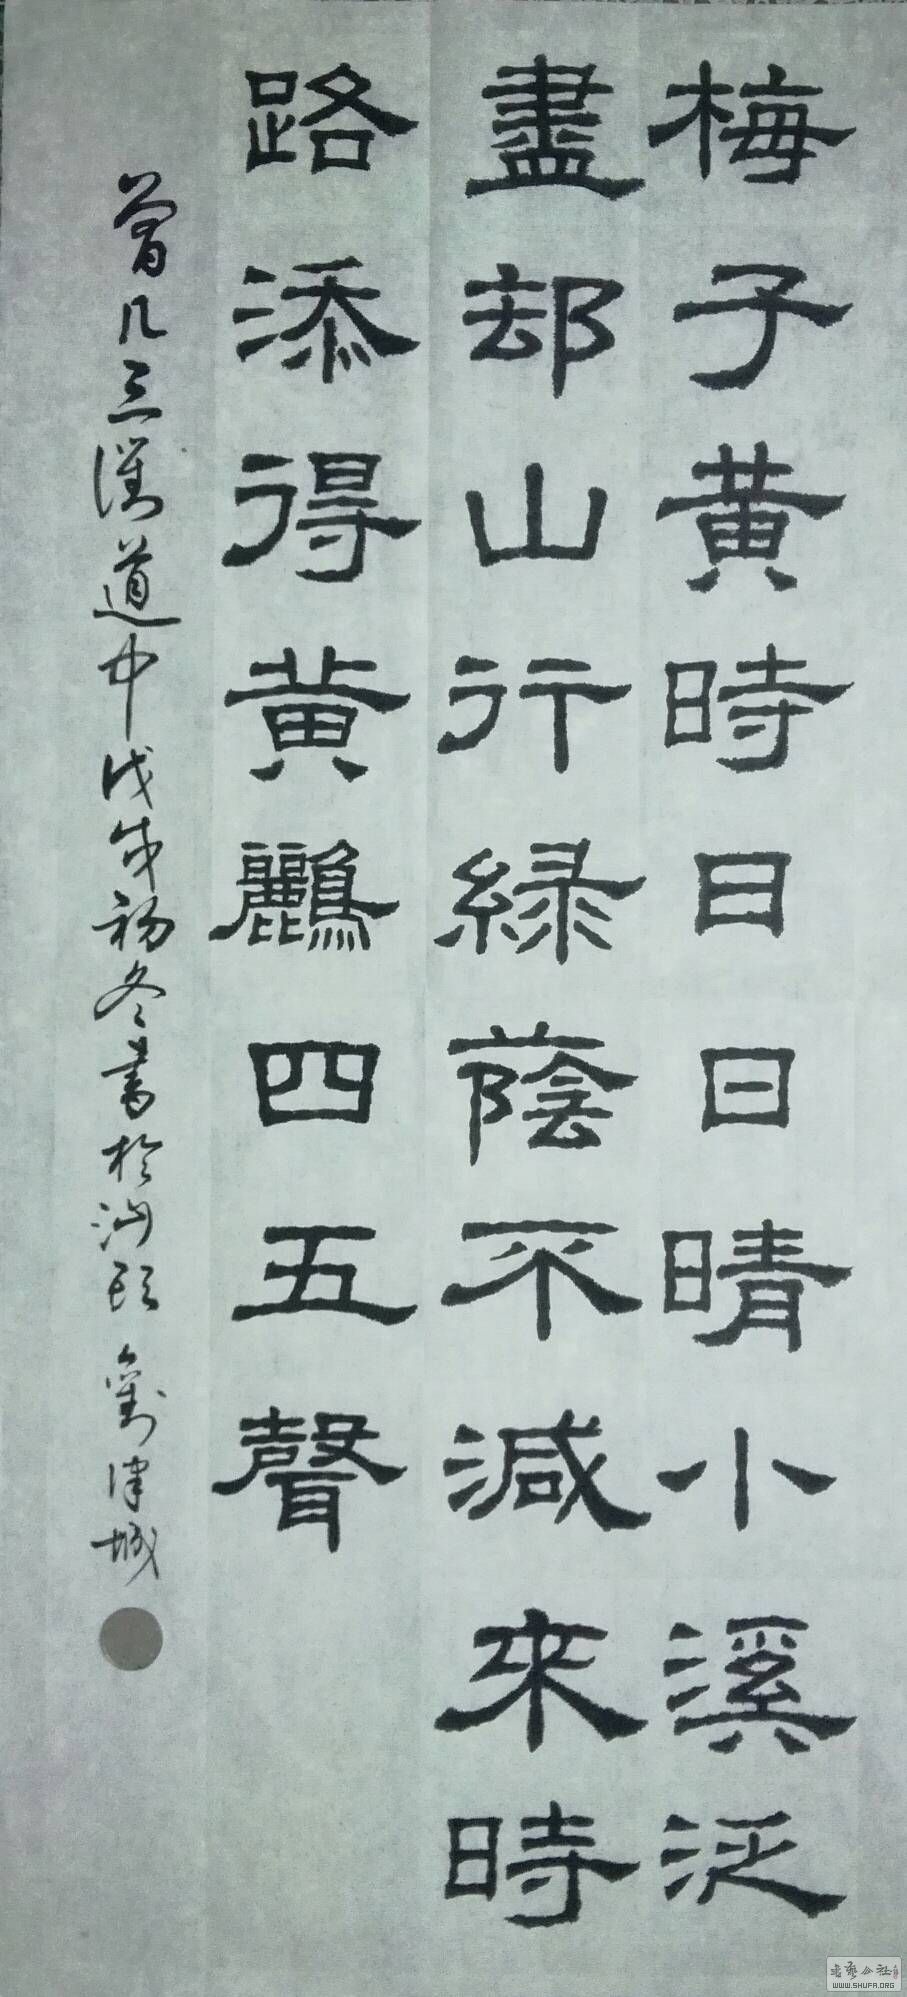 梅子黃時日日晴小溪泛
盡却山行緑蔭不減來時
路添得黄鸝四五聲
曾几三衢道中戊戌初冬書於
劉津城
WWW.SHUFA.ORG